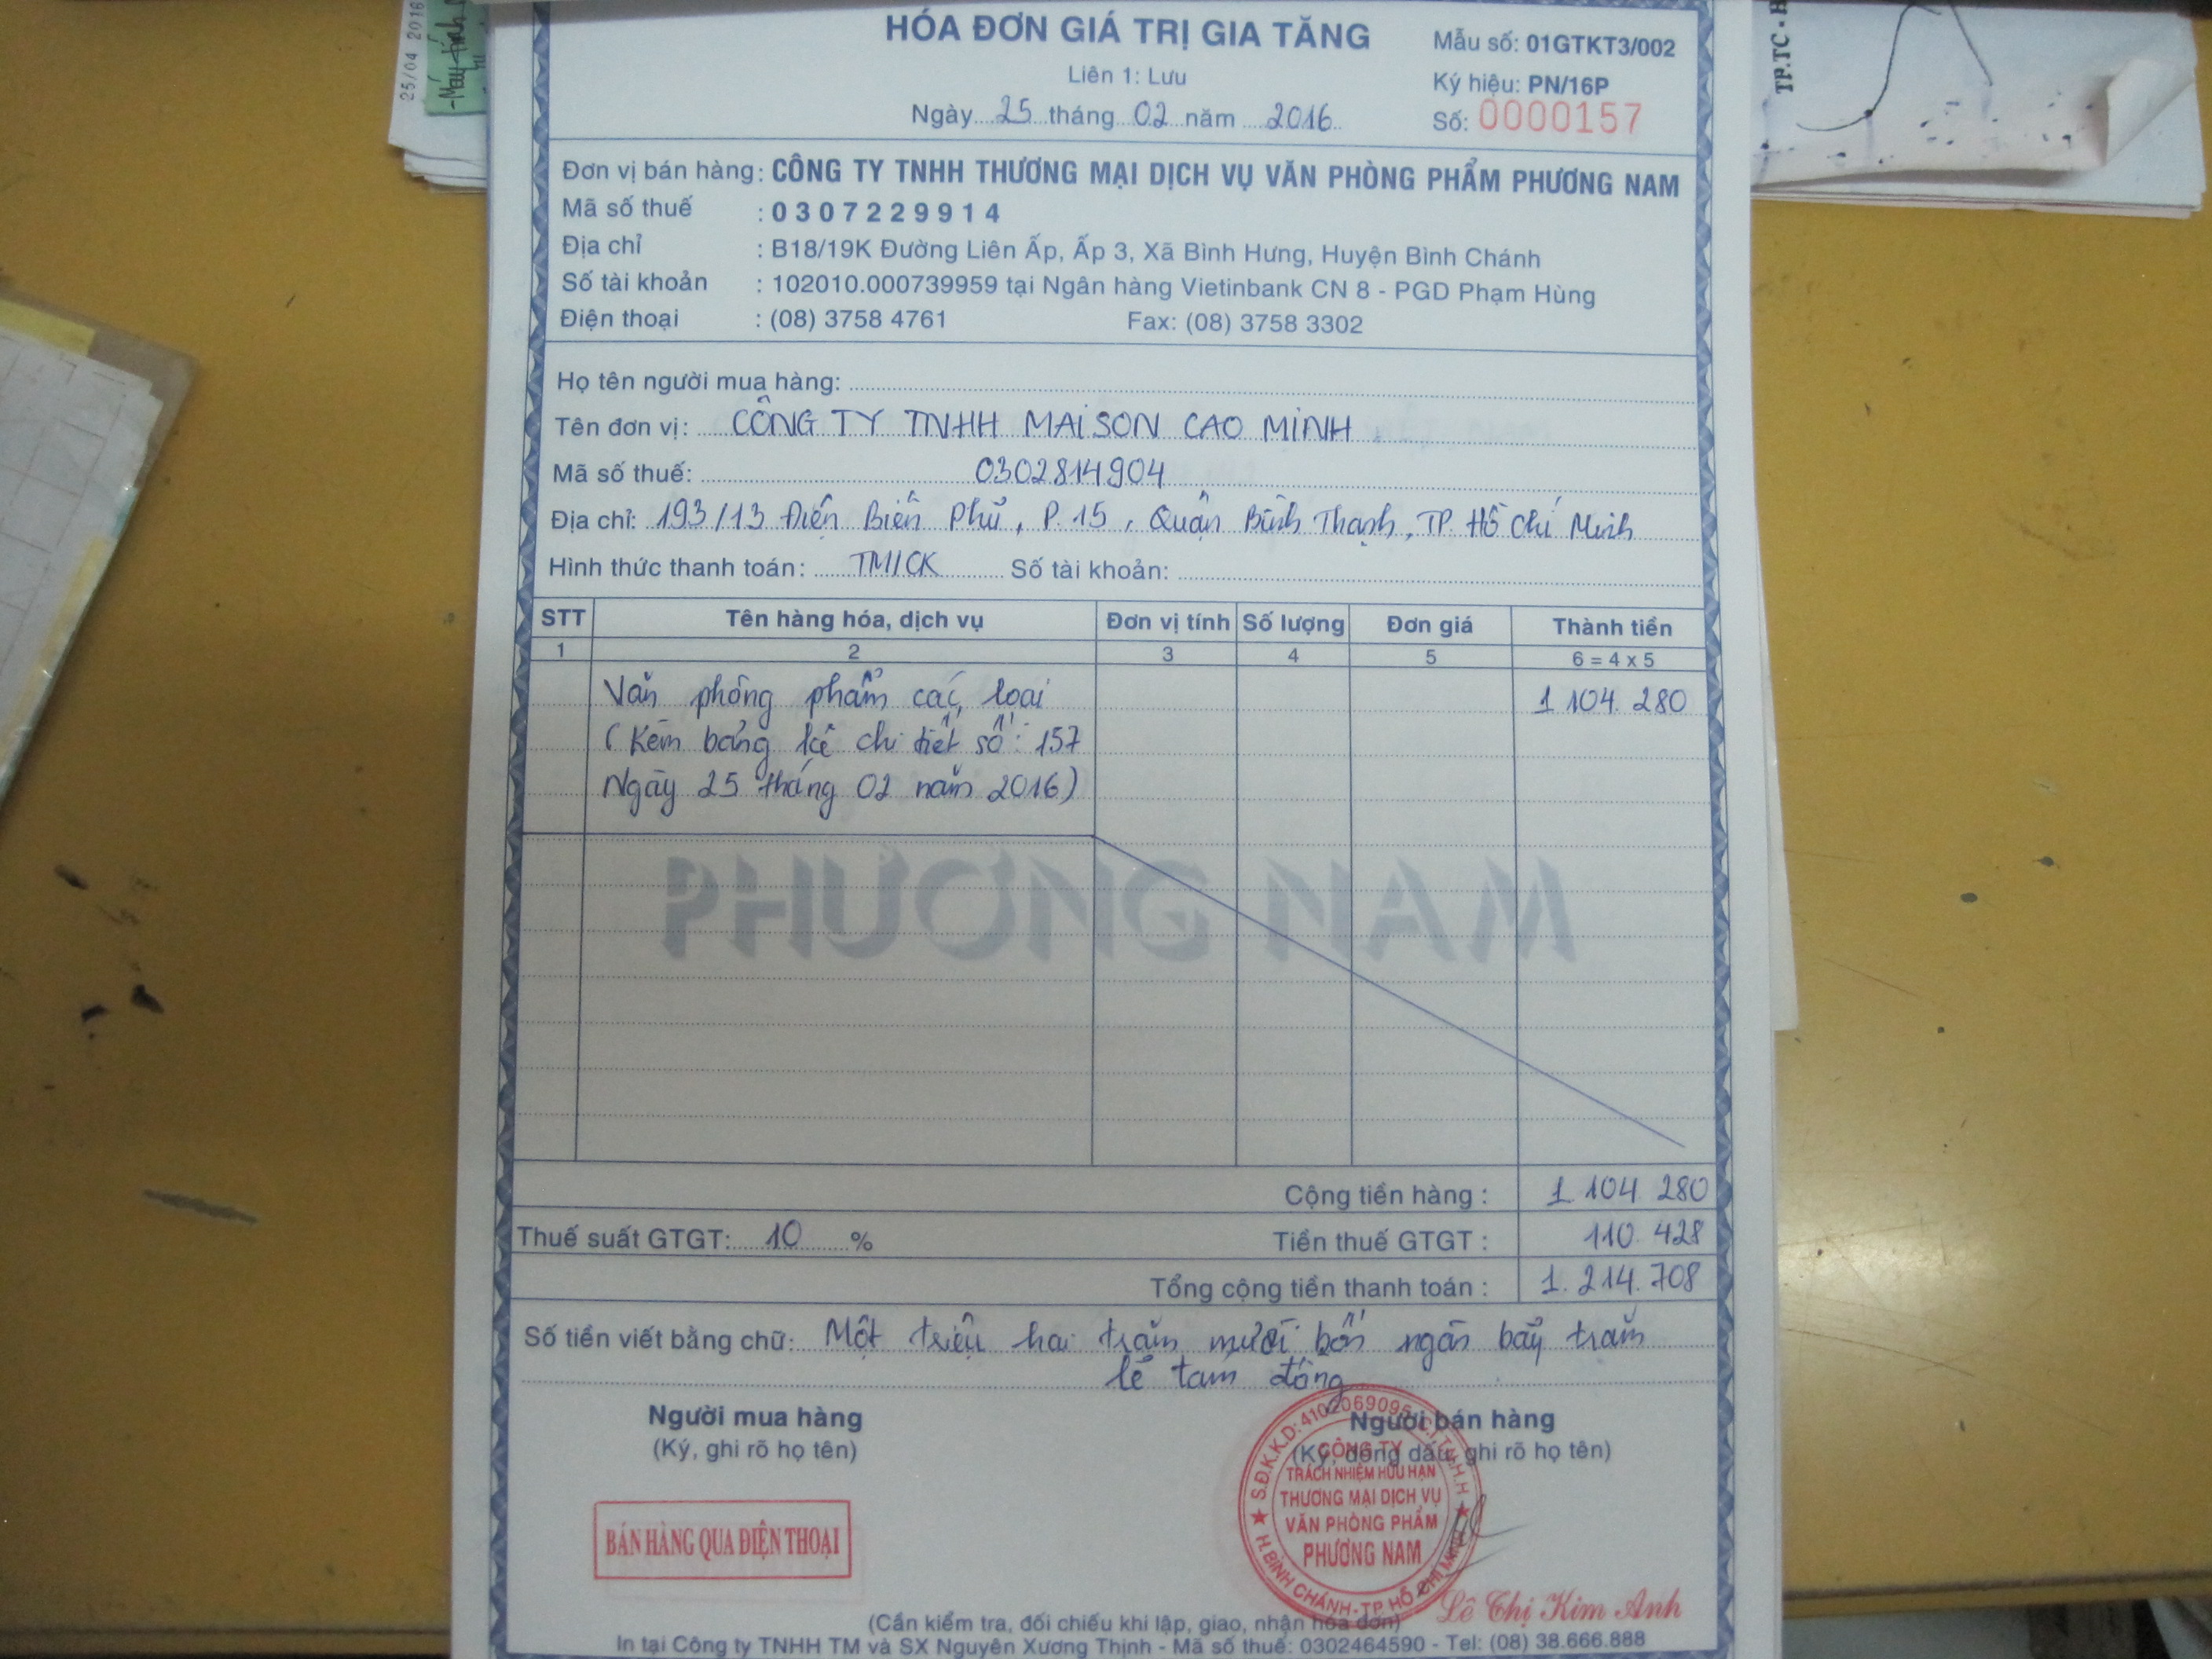 25/04 2016
-Máy tính
TP.TC - H
HÓA ĐƠN GIÁ TRỊ GIA TĂNG
Liên 1: Lưu
Ngày 25 tháng 02 năm 2016
Mẫu số: 01GTKT3/002
Ký hiệu: PN/16P
Số: 0000157
Đơn vị bán hàng: CÔNG TY TNHH THƯƠNG MẠI DỊCH VỤ VĂN PHÒNG PHẨM PHƯƠNG NAM
Mã số thuế : 0307229914
Địa chỉ : B18/19K Đường Liên Ấp, Ấp 3, Xã Bình Hưng, Huyện Bình Chánh
Số tài khoản : 102010.000739959 tại Ngân hàng Vietinbank CN 8 - PGD Phạm Hùng
Điện thoại : (08) 3758 4761 Fax: (08) 3758 3302
Họ tên người mua hàng:
Tên đơn vị: CÔNG TY TNHH MAISON CAO MINH
Mã số thuế: 0302814904
Địa chỉ: 193/13 Điện Biên Phủ, P.15, Quận Bình Thạnh, TP. Hồ Chí Minh
Hình thức thanh toán: TM/CK Số tài khoản:
STT Tên hàng hóa, dịch vụ Đơn vị tính Số lượng Đơn giá Thành tiền
1 2 3 4 5 6 = 4 x 5
Văn phòng phẩm các loại 1 104. 280
(Kèm bảng kê chi tiết số: 157
Ngày 25 tháng 02 năm 2016)
PHƯƠNG NAM
Cộng tiền hàng : 1 104. 280
Thuế suất GTGT: 10 % Tiền thuế GTGT : 110. 428
Tổng cộng tiền thanh toán : 1. 214. 708
Số tiền viết bằng chữ: Một triệu hai trăm mười bốn ngàn bảy trăm
lẻ tám đồng
Người mua hàng
(Ký, ghi rõ họ tên)
Người bán hàng
(Ký, đóng dấu, ghi rõ họ tên)
BÁN HÀNG QUA ĐIỆN THOẠI
S.Đ.K.K.D: 4102069095-C.T.T.N.H.H
CÔNG TY
TRÁCH NHIỆM HỮU HẠN
THƯƠNG MẠI DỊCH VỤ
VĂN PHÒNG PHẨM
PHƯƠNG NAM
H. BÌNH CHÁNH-TP HỒ CHÍ MINH
Lê Thị Kim Anh
(Cần kiểm tra, đối chiếu khi lập, giao, nhận hóa đơn)
In tại Công ty TNHH TM và SX Nguyên Xương Thịnh - Mã số thuế: 0302464590 - Tel: (08) 38.666.888